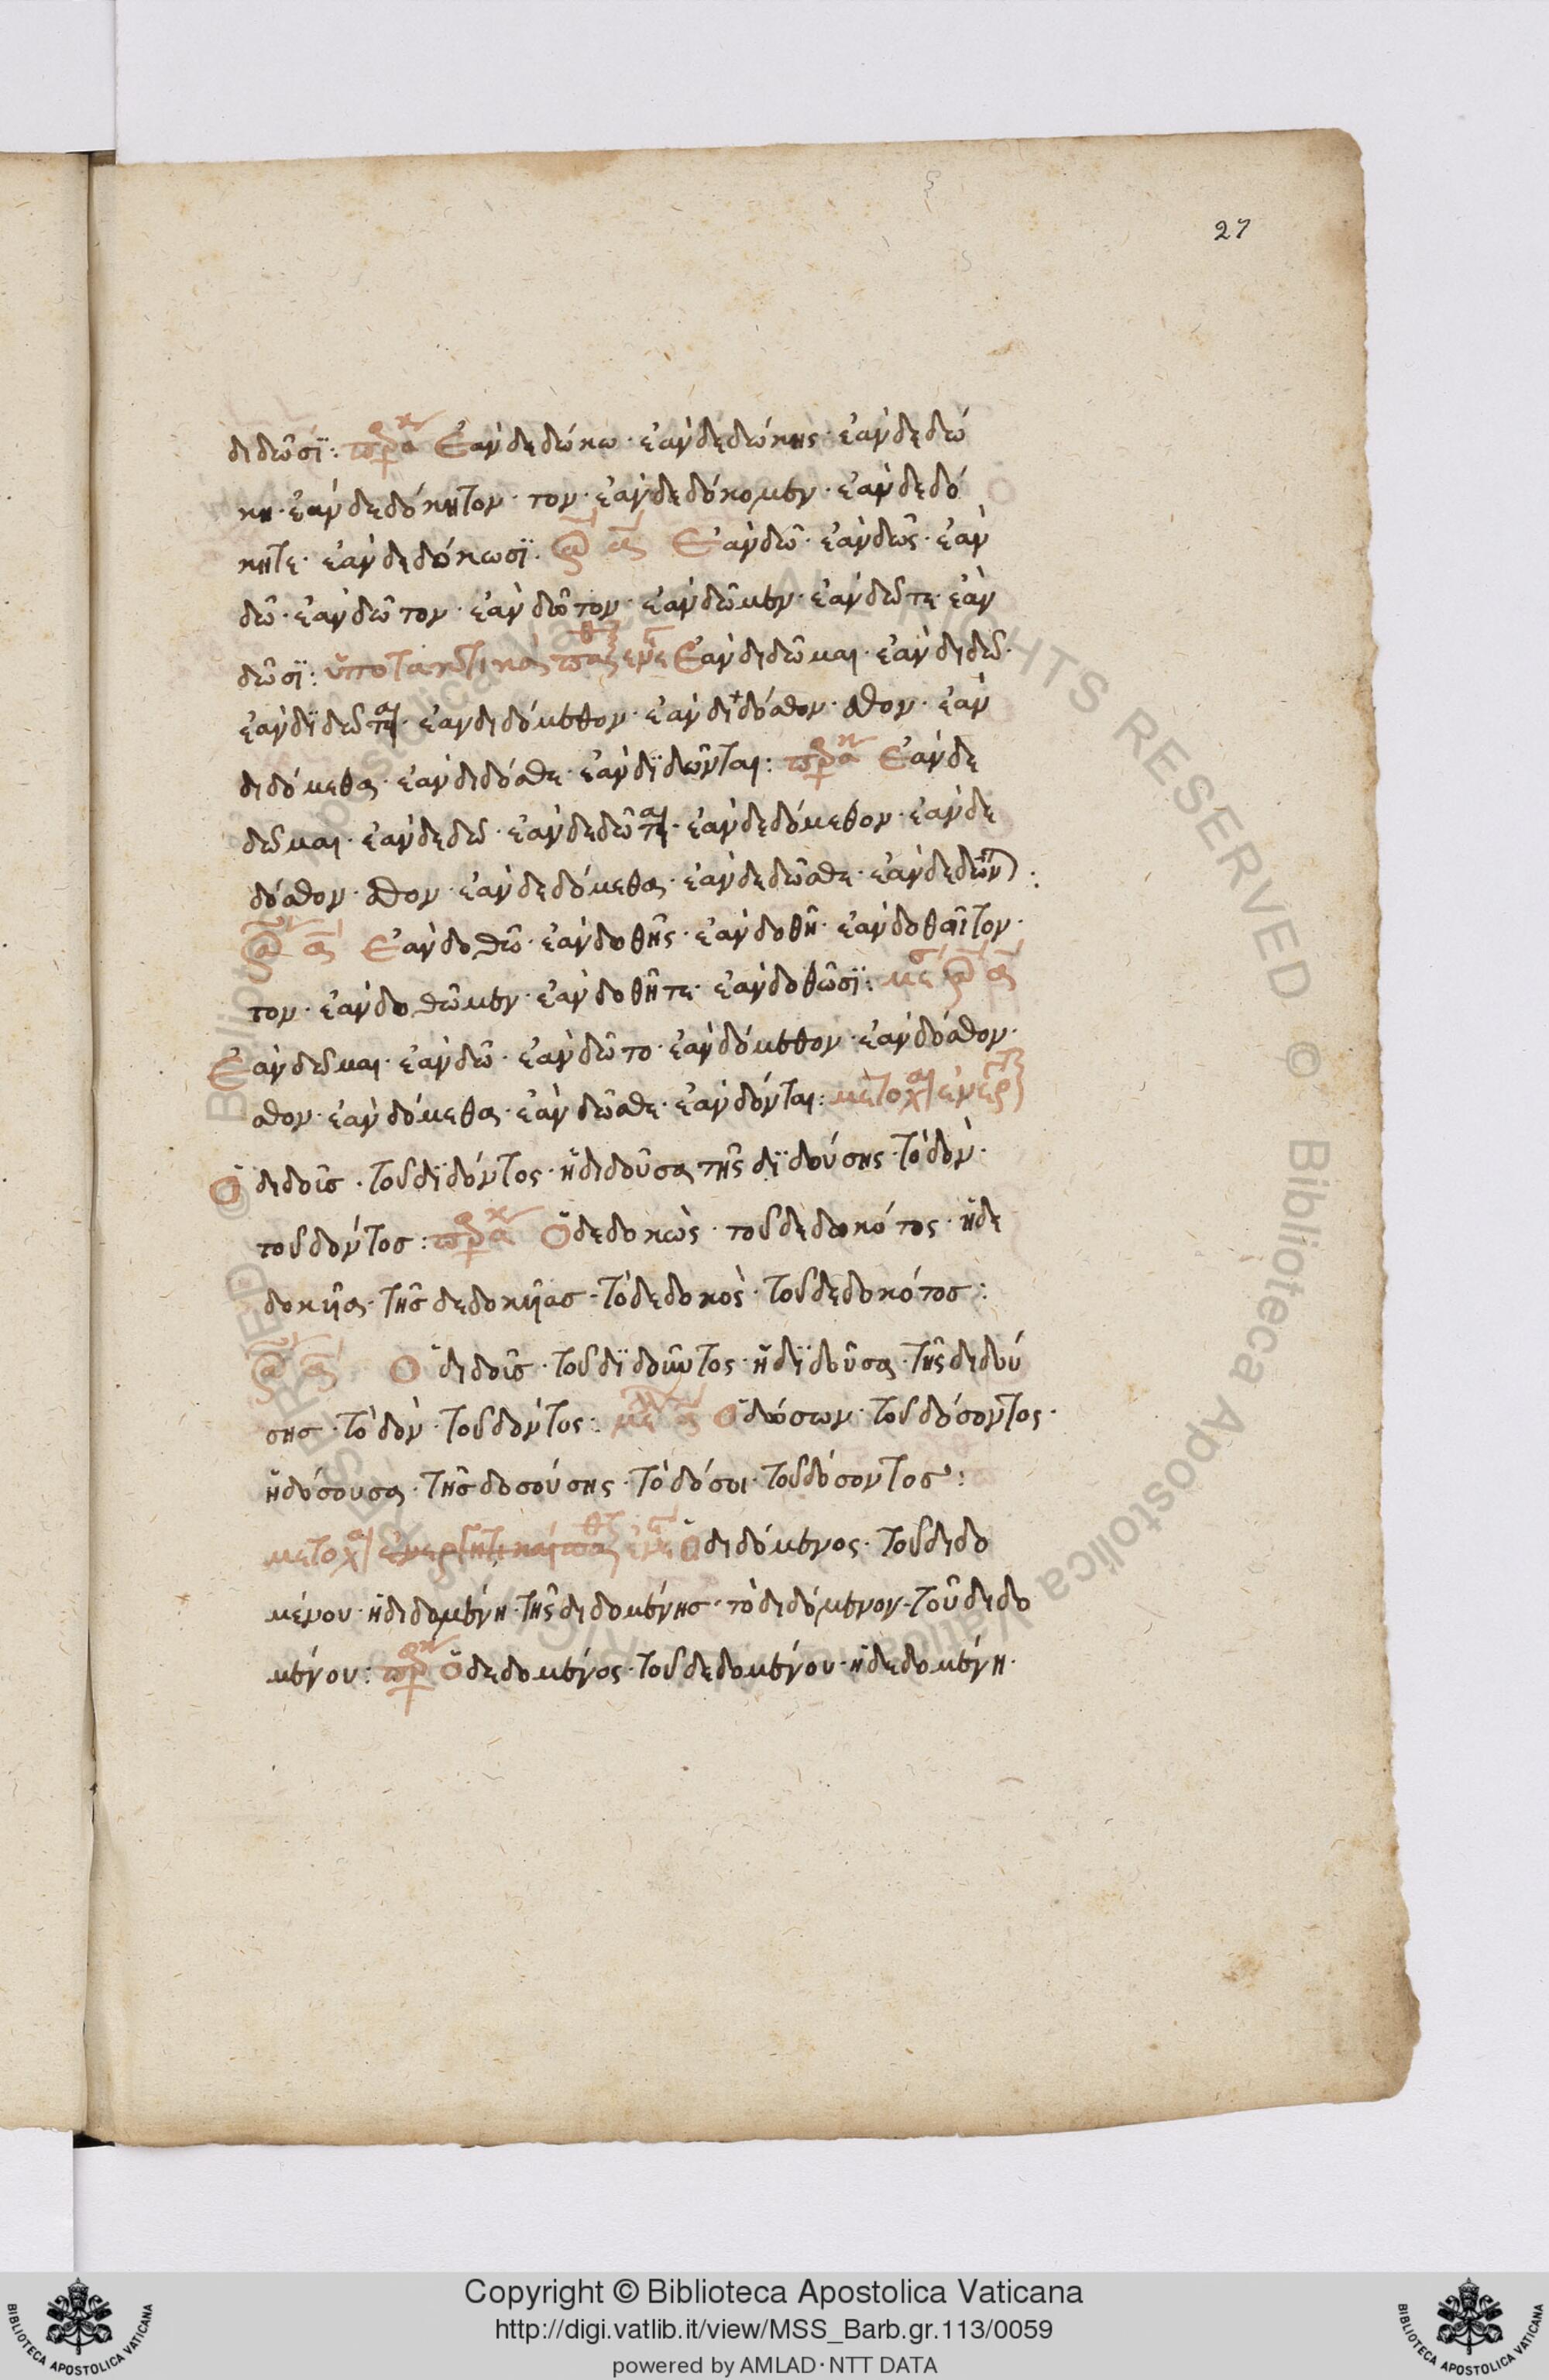 27
διδῶσϊ: Ἐὰν δεδώκω · ἐὰν δεδώκης · ἐὰν δεδώ
κη · ἐὰν δεδόκητον · τον · ἐὰν δεδόκομεν · ἐὰν δεδό
κητε · ἐὰν δεδόκωσϊ · Ἐὰν δῶ · ἐὰν δῶς · ἐὰν
δῶ · ἐὰν δῶτον · ἐὰν δῶτον · ἐὰν δῶμεν · ἐὰν δῶτε · ἐὰν
δῶσϊ: ὑποτακτικὰ Ἐὰν διδῶμαι · ἐὰν διδῶ ·
ἐὰν δϊδῶται · ἐὰν διδόμεθον · ἐὰν διδόσθον · σθον · ἐὰν
διδόμεθα · ἐὰν διδόσθε · ἐὰν δϊδῶνται: Ἐὰν δε
δῶμαι · ἐὰν δεδῶ · ἐὰν δεδῶται · ἐὰν δεδόμεθον · ἐὰν δε
δόσθον · σθον · ἐὰν δεδόμεθα · ἐὰν δεδῶσθε · ἐὰν δεδῶν :
Ἐὰν δοθῶ · ἐὰν δοθῆς · ἐὰν δοθῆ · ἐὰν δοθαῖτον ·
τον · ἐὰν δοθῶμεν · ἐὰν δοθῆτε · ἐὰν δοθῶσϊ:
Ἐὰν δῶμαι · ἐὰν δῶ · ἐὰν δῶτο · ἐὰν δόμεθον · ἐὰν δόσθον ·
σθον · ἐὰν δόμεθα · ἐὰν δῶσθε · ἐὰν δόνται: μετοχαὶ
Ὁ διδοῖς · τοῦ δϊδόντος · ἡ διδοῦσα τῆς δϊδούσης · τὸ δὸν ·
τοῦ δόντος: Ὁ δεδοκὼς · τοῦ δεδοκότος · ἡ δε
δοκυῖα · τῆς δεδοκυῖας · τὸ δεδοκὸς · τοῦ δεδοκότος:
Ὁ διδοῖς · τοῦ δϊδοῦντος · ἡ δϊδοῦσα · τῆς διδού
σης · τὸ δὸν · τοῦ δόντος: Ὁ δόσων · τοῦ δόσοντος ·
ἡ δόσουσα · τῆς δοσούσης · τὸ δόσοι · τοῦ δόσοντος:
μετοχαὶ Ὁ διδόμενος · τοῦ διδο
μένου · ἡ διδομένη · τῆς διδομένης · τὸ διδόμενον · τοῦ διδο
μένου: Ὁ δεδομένος · τοῦ δεδομένου · ἡ δεδομένη ·
Copyright © Biblioteca Apostolica Vaticana
http://digi.vatlib.it/view/MSS_Barb.gr.113/0059
powered by AMLAD · NTT DATA